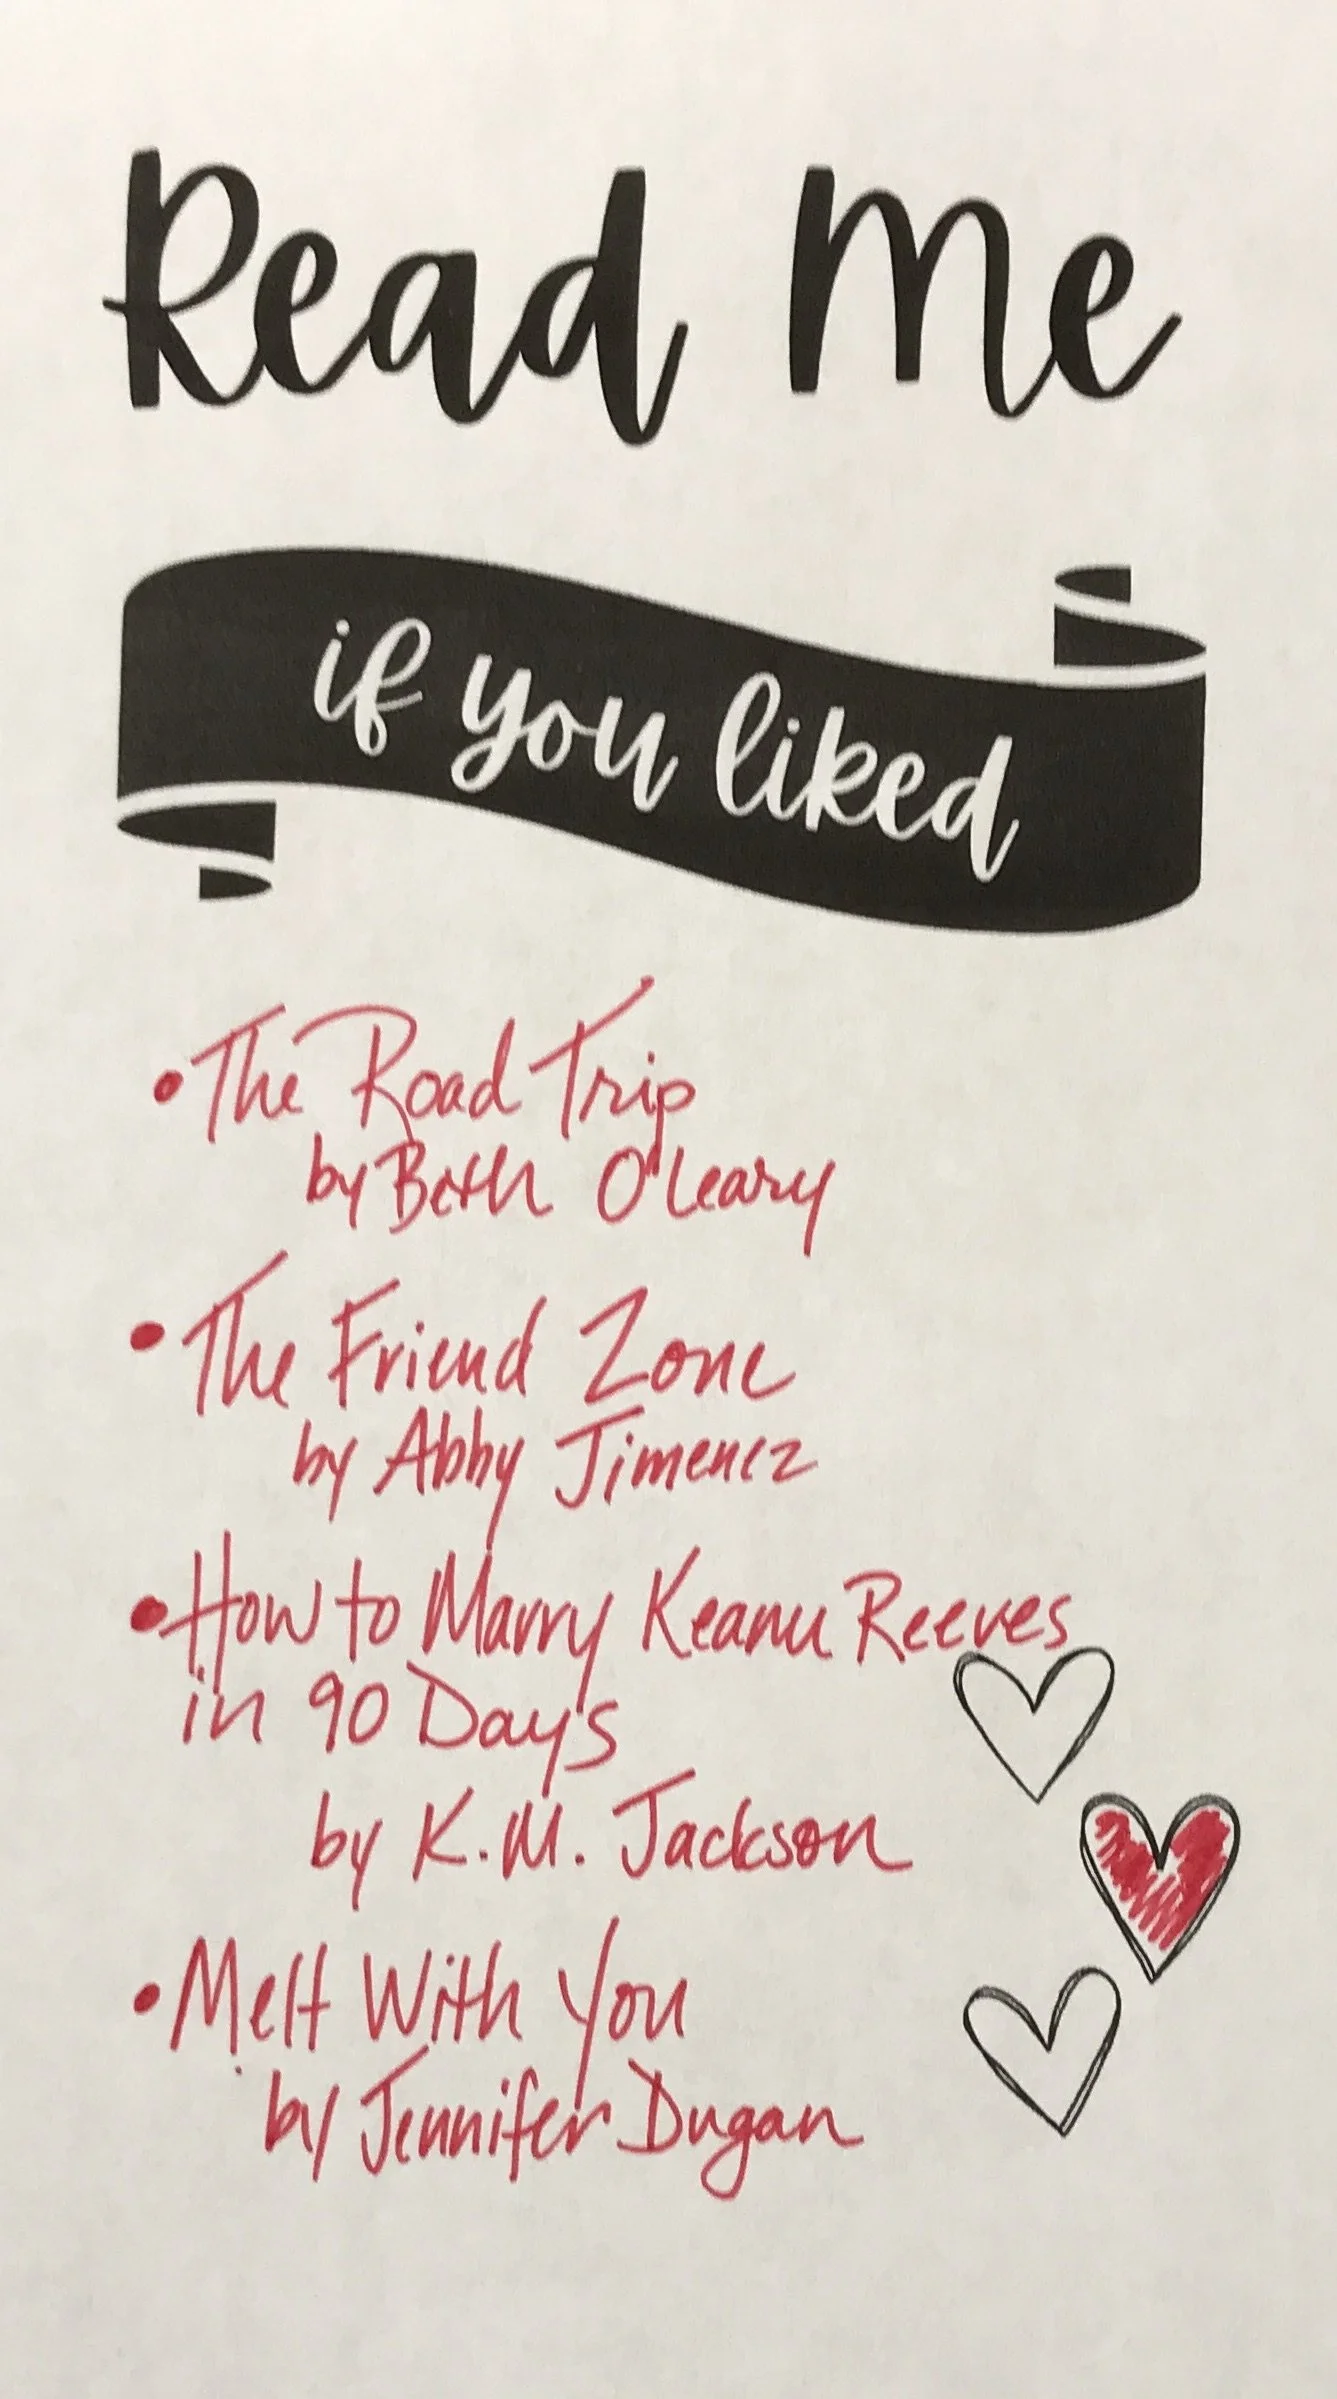 Read Me
if you liked
• The Road Trip
by Beth O'Leary
• The Friend Zone
by Abby Jimenez
• How to Marry Keanu Reeves
in 90 Days
by K.M. Jackson
• Melt With You
by Jennifer Dugan